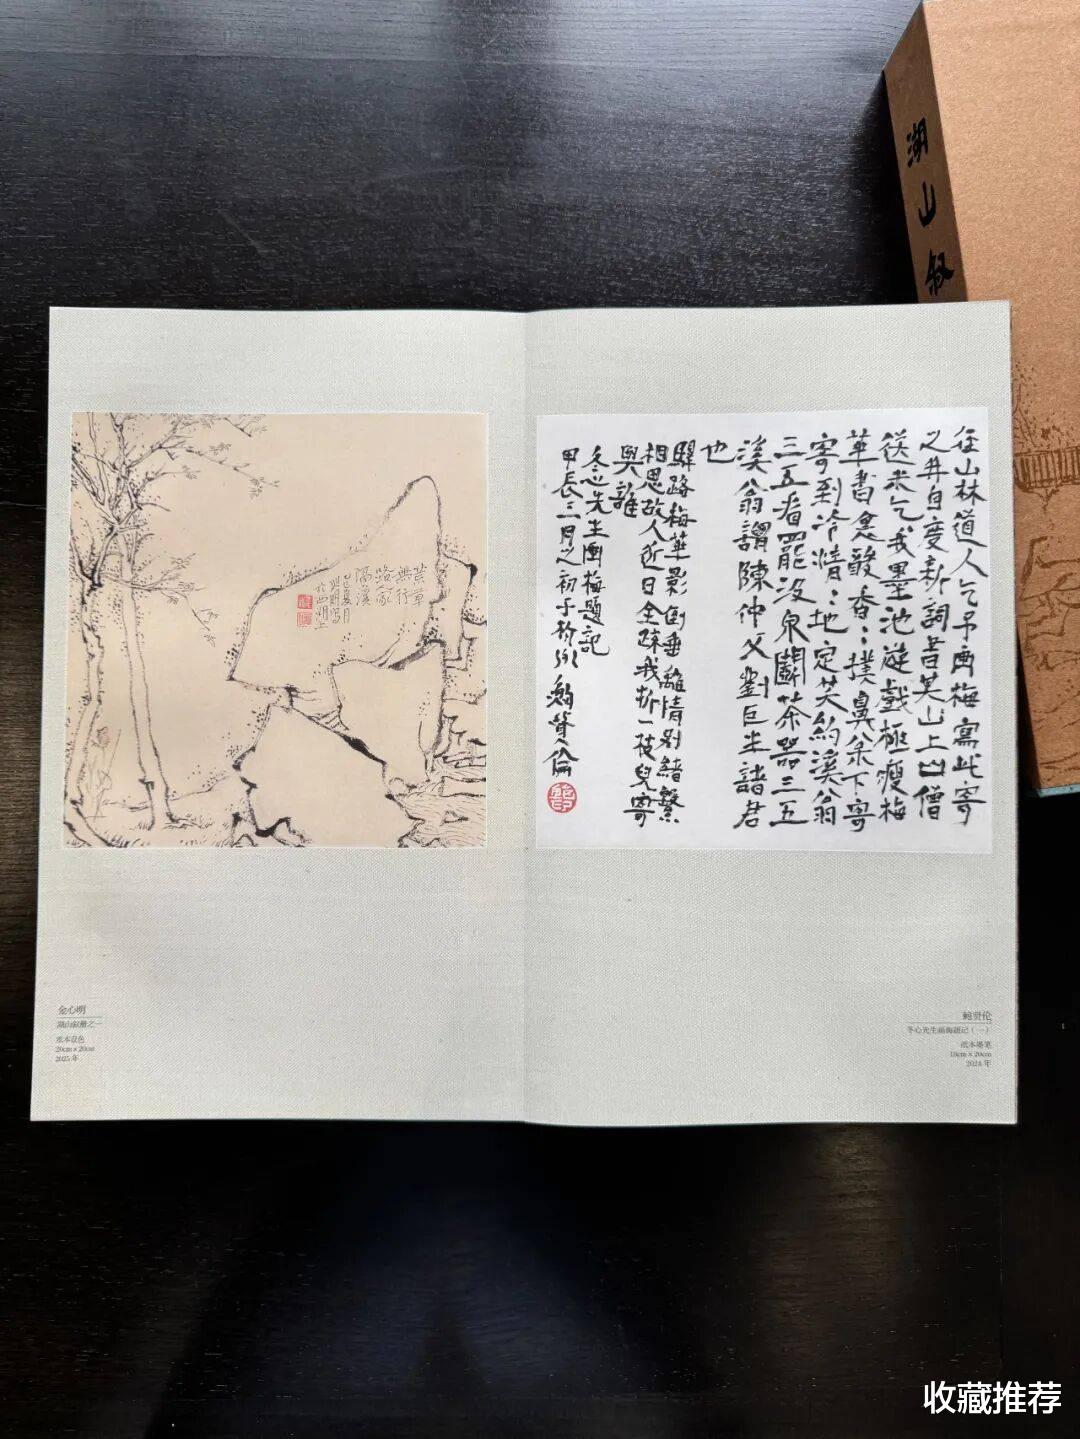 湖山叙
荒草
無行
路
隔溪
乙巳夏月
心明寫
於西湖上
往山林道人乞予画梅寫此寄
之并自度新詞 山上 僧
送米乞我墨池遊戲極瘦梅
華 酸香:撲鼻 下寄
寄到冷清:地定笑約溪翁
三五看罷汲泉鬭茶器三五
溪翁謂陳仲父劉巨生諸君
也
驛路梅華影倒垂離情別緒繫
相思故人近日全疎我折一枝兒寄
與誰
冬心先生画梅題記
甲辰三月之初于杭州 鮑賢倫
金心明
湖山叙册之一
纸本设色
20cm×20cm
2025 年
鲍贤伦
冬心先生画梅题记（一）
纸本墨笔
18cm×20cm
2024 年
收藏推荐